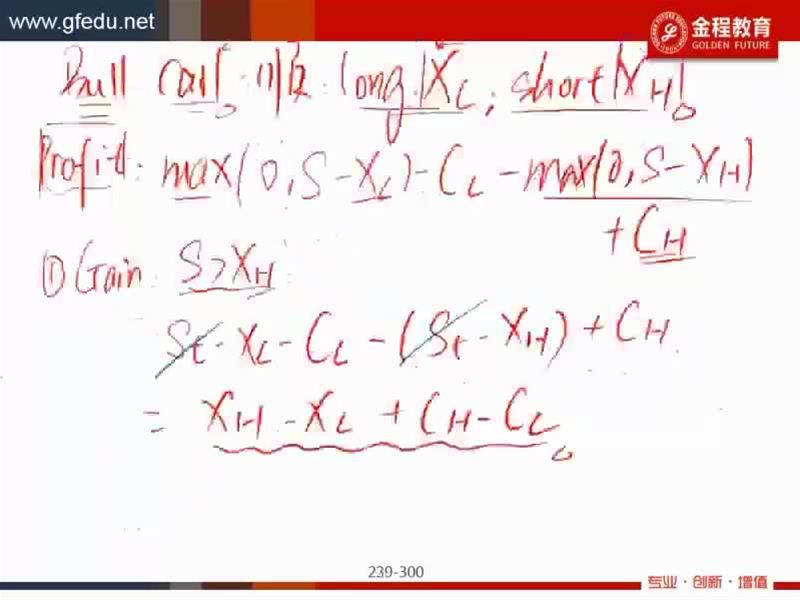 www.gfedu.net
金程教育
GOLDEN FUTURE
Bull Call: long XL; short XH
Profit: max(0, S-XL) - CL - max(0, S-XH)
+ CH
① Gain: S>XH
St - XL - CL - (St - XH) + CH
= XH - XL + CH - CL
239-300
专业·创新·增值